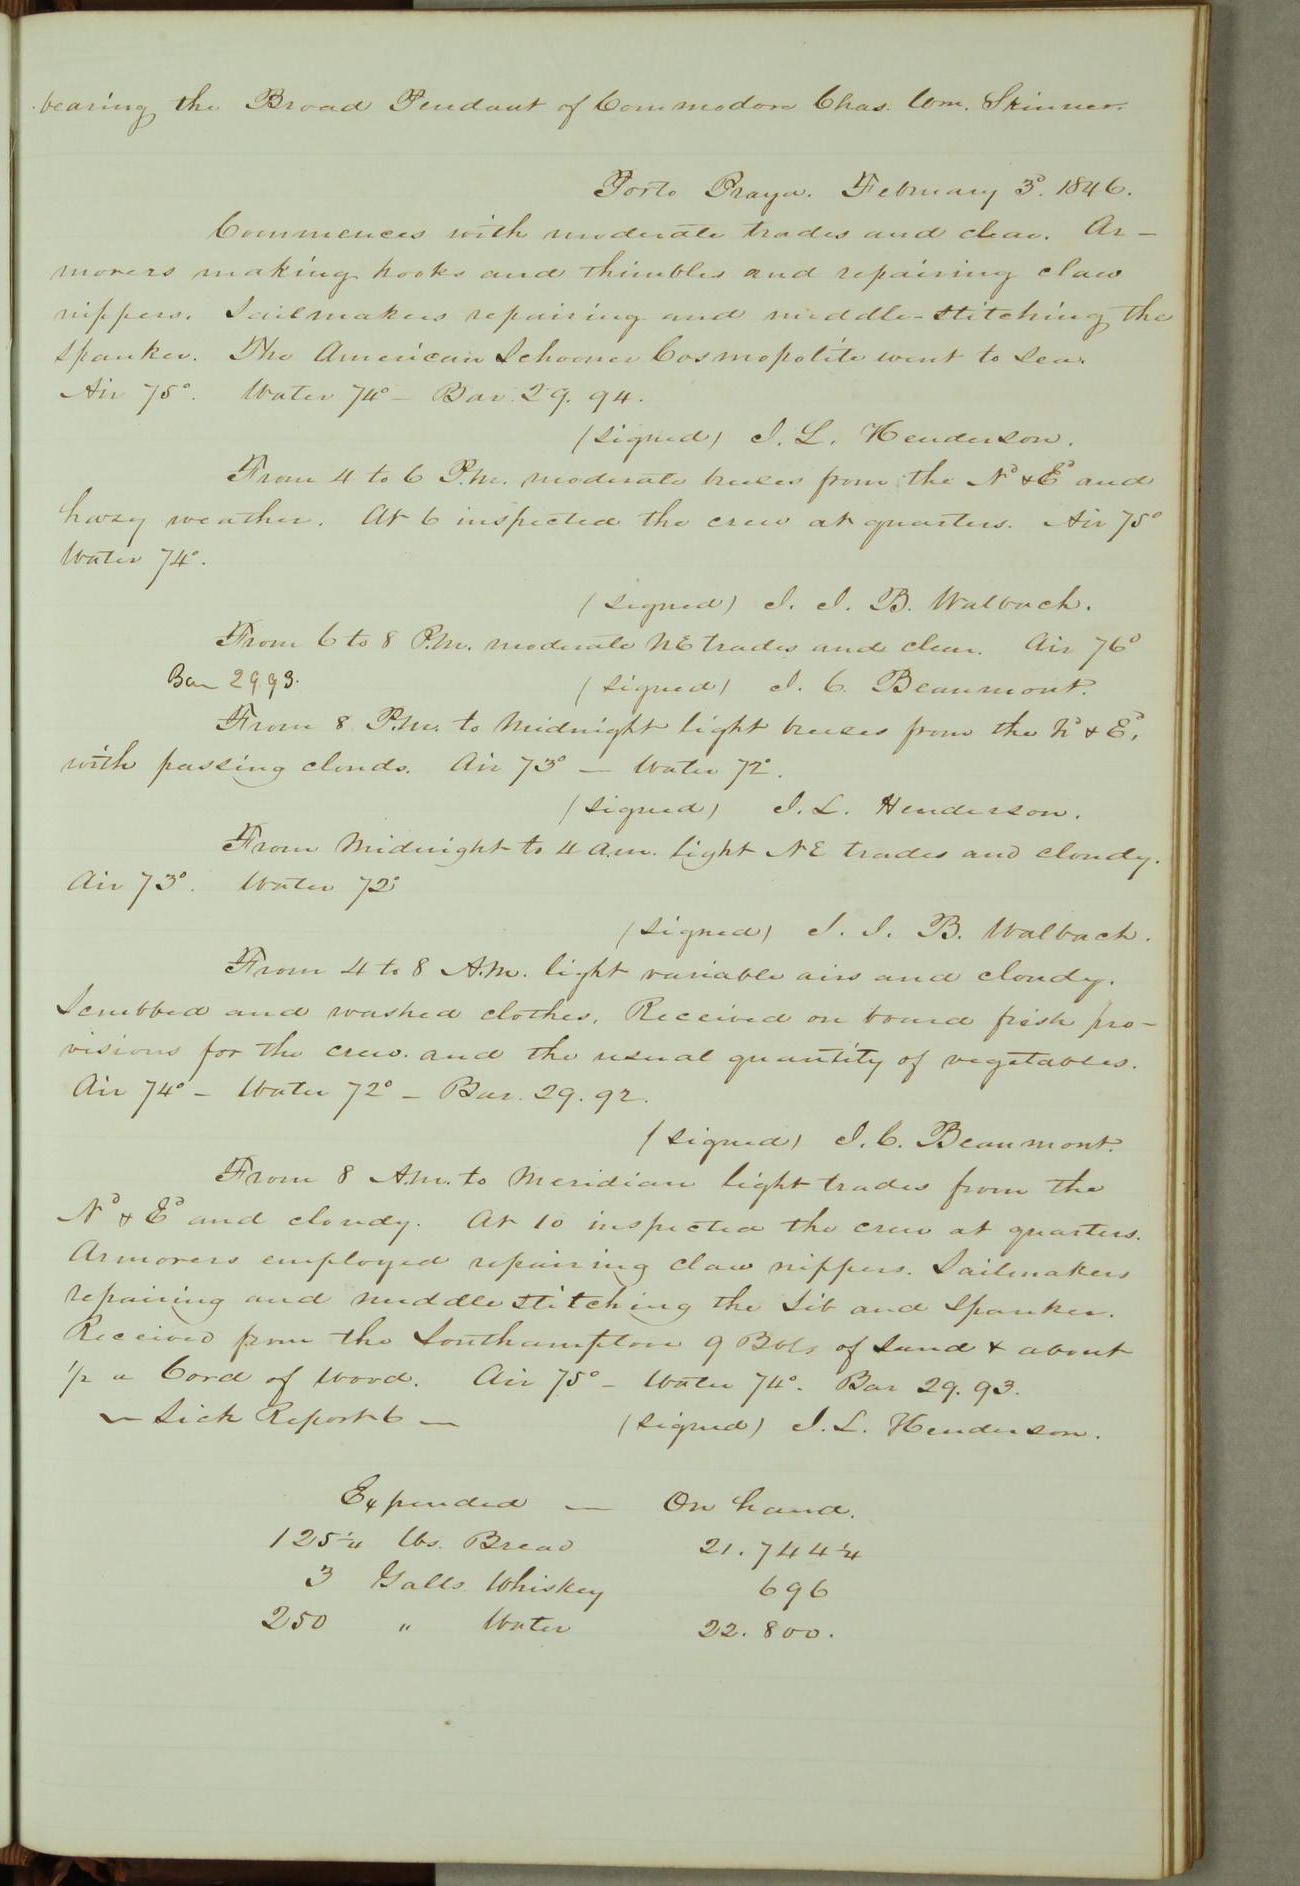 bearing the Broad Pendant of Commodore Chas. Wm. Skinner.
Porto Praya. February 3d. 1846.
Commences with moderate trades and clear. Ar-
morers making hooks and thimbles and repairing claw
nippers. Sailmakers repairing and middle-stitching the
Spanker. The American Schooner Cosmopolite went to Sea.
Air 75°. Water 74° - Bar. 29.94.
(signed) J. L. Henderson.
From 4 to 6 P.M. moderate breezes from the Nd & Ed and
hazy weather. At 6 inspected the crew at quarters. Air 75°
Water 74°.
(signed) J. J. B. Walbach.
From 6 to 8 P.M. moderate NE trades and clear. Air 76°
Bar 29.93.
(signed) J. C. Beaumont.
From 8 P.M. to Midnight light breezes from the Nd & Ed,
with passing clouds. Air 73° — Water 72°.
(signed) J. L. Henderson.
From Midnight to 4 A.M. light NE trades and cloudy.
Air 73°. Water 72°
(signed) J. J. B. Walbach.
From 4 to 8 A.M. light variable airs and cloudy.
Scrubbed and washed clothes. Received on board fresh pro-
visions for the crew. and the usual quantity of vegetables.
Air 74° - Water 72° - Bar. 29.92.
(signed) J. C. Beaumont.
From 8 A.M. to Meridian light trades from the
Nd & Ed and cloudy. At 10 inspected the crew at quarters.
Armorers employed repairing claw nippers. Sailmakers
repairing and middle stitching the Jib and Spanker.
Received from the Southampton 9 Bbls of Sand & about
1/2 a Cord of Wood. Air 75° - Water 74°. Bar 29.93.
— Sick Report 6 —
(signed) J. L. Henderson.
Expended — On hand.
125 1/4 lbs. Bread 21.744 1/4
3 Galls. Whiskey 696
250 " Water 22.800.